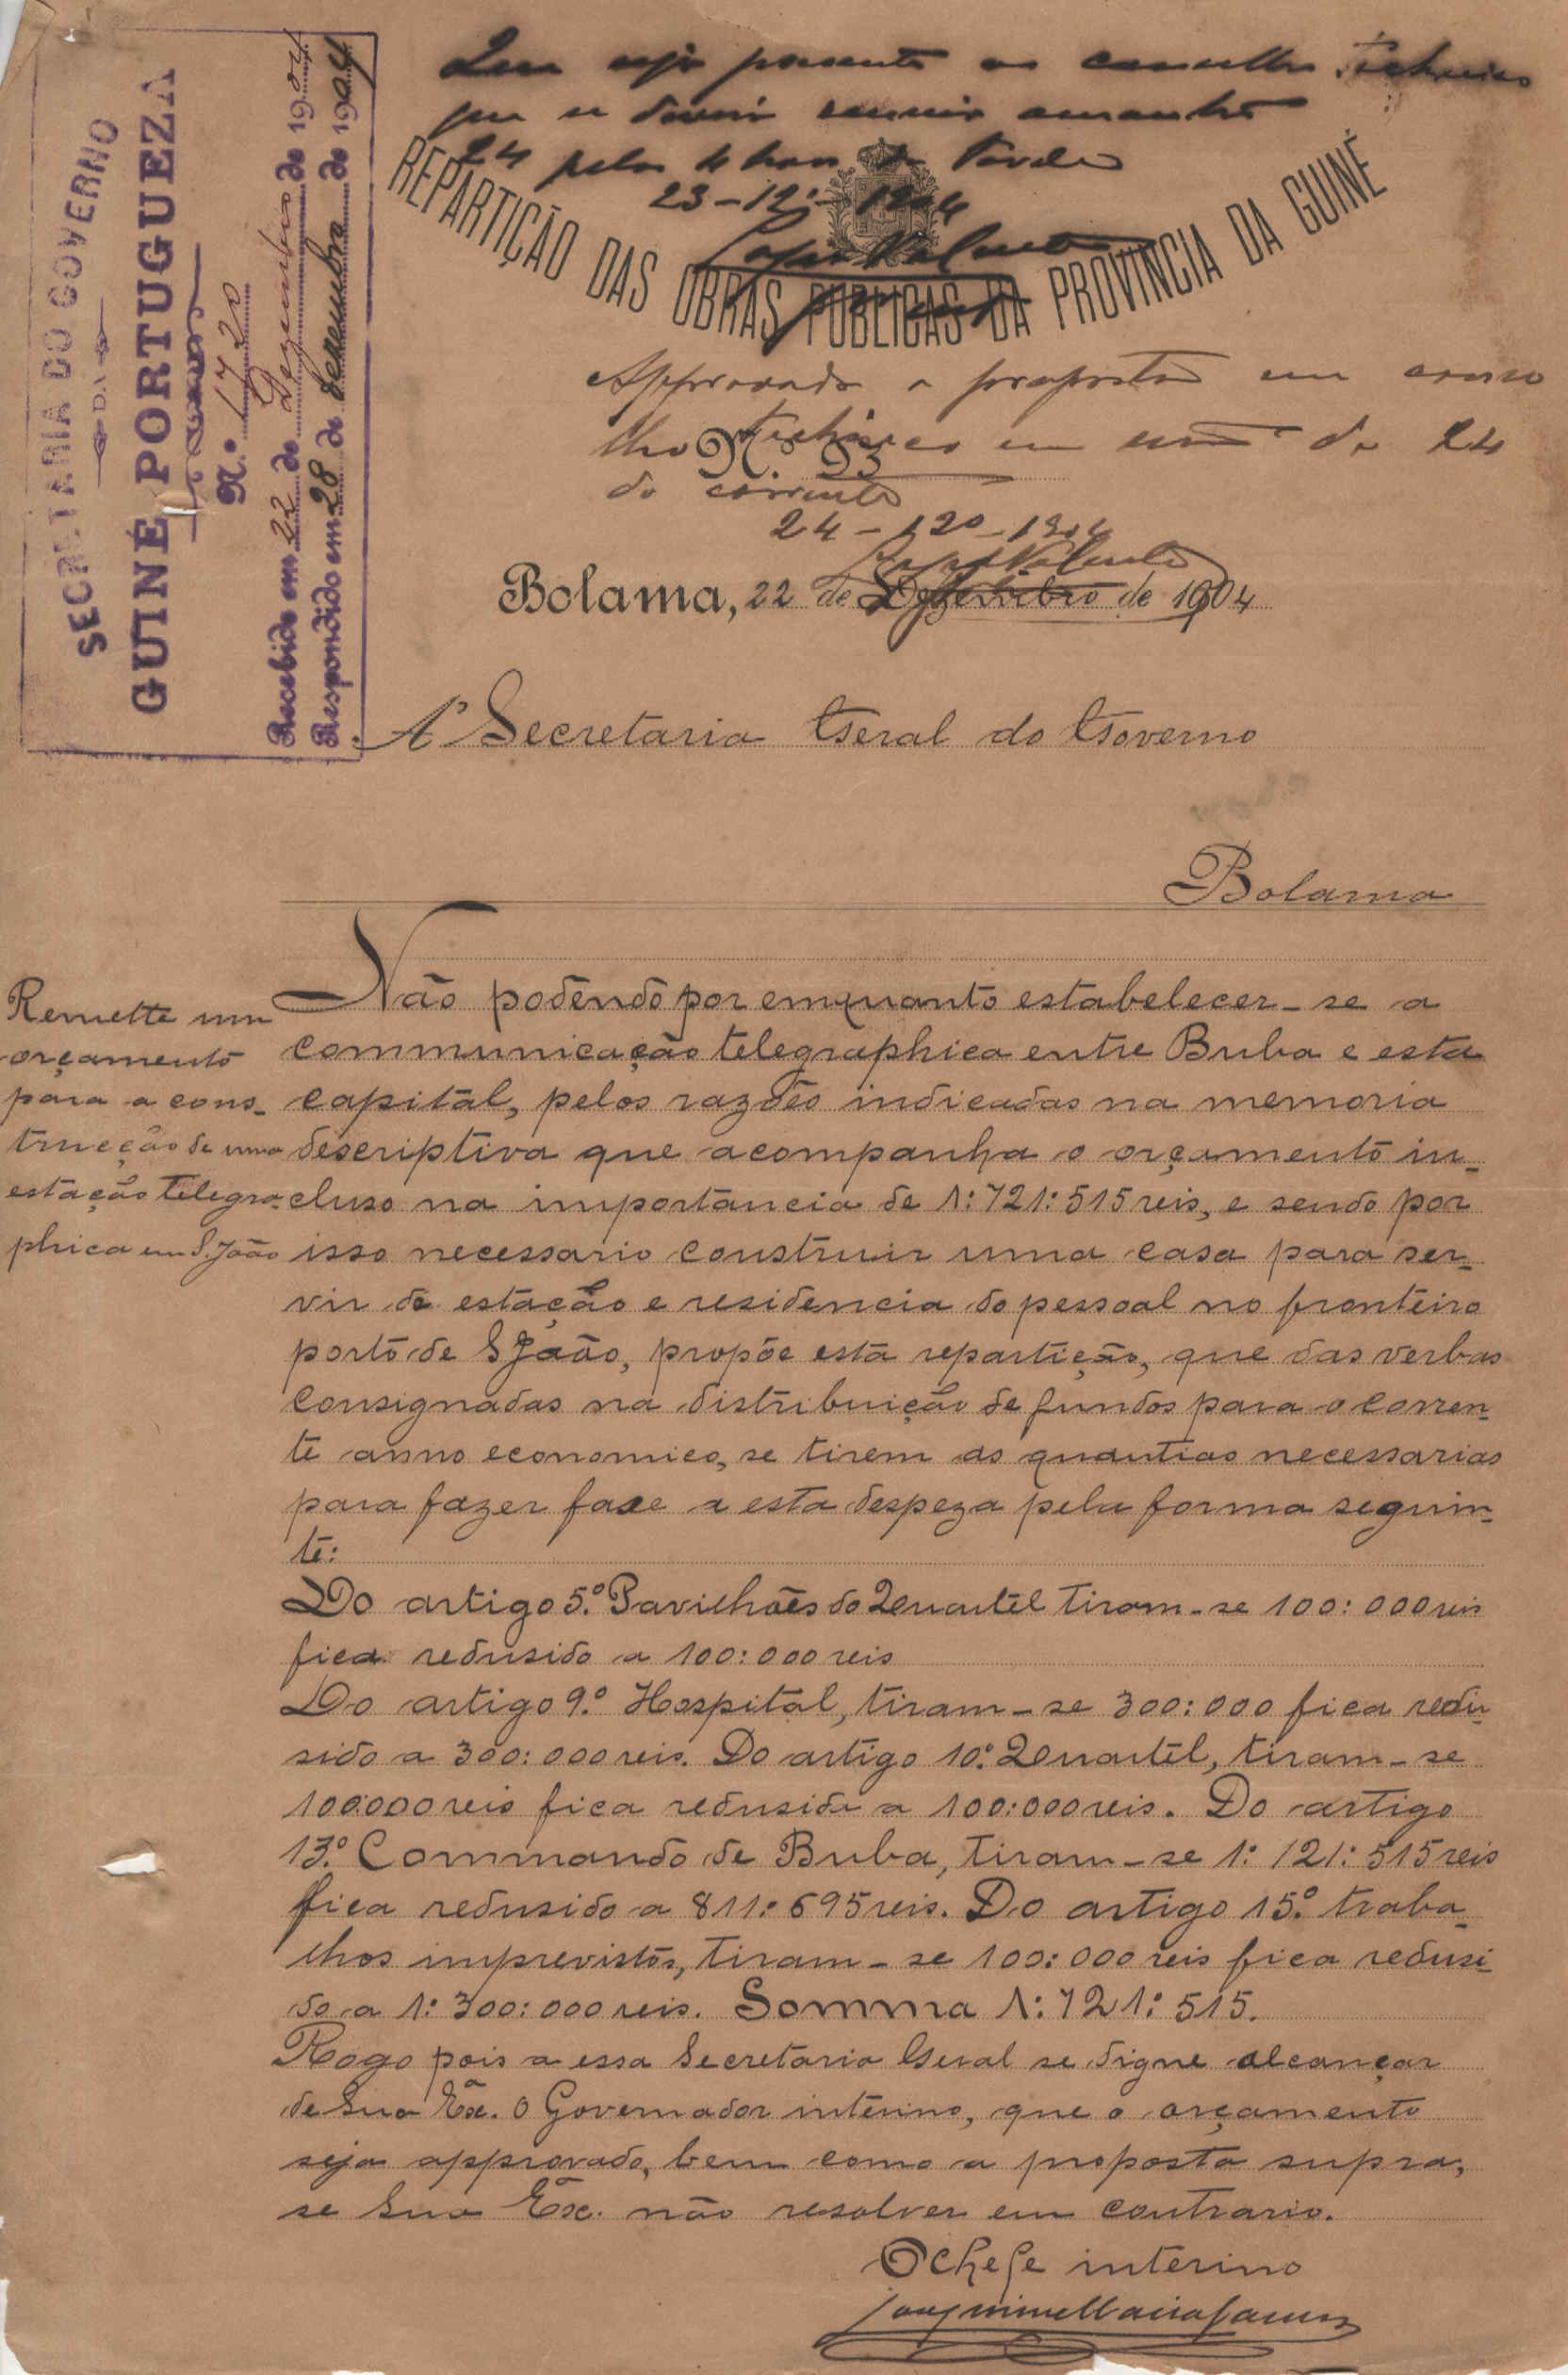 SECRETARIA DO GOVERNO
DA
GUINÉ PORTUGUEZA
N.º 1720
Recebido em 22 de Dezembro de 1904
Respondido em 28 de dezembro de 1904
seja presente ao conselho technico
que se deverá reunir amanhã
24 pelas 4 horas da tarde
23-12-1904
REPARTIÇÃO DAS OBRAS PUBLICAS DA PROVINCIA DA GUINÉ
Approvada a proposta em conse
lho technico em de 24
do corrente
24-12-1904
N.º 93
Bolama, 22 de Dezembro de 1904
A' Secretaria Geral do Governo
Bolama
Remette um
orçamento
para a cons-
trucção de uma
estação telegra-
phica em S. João
Não podendo por emquanto estabelecer-se a
communicação telegraphica entre Buba e esta
capital, pelos razões indicadas na memoria
descriptiva que acompanha o orçamento in-
cluso na importancia de 1:721:515 reis, e sendo por
isso necessario construir uma casa para ser-
vir de estação e residencia do pessoal no fronteiro
porto de S João, propõe esta repartição, que das verbas
consignadas na distribuição de fundos para o corren-
te anno economico, se tirem as quantias necessarias
para fazer face a esta despeza pela forma seguin-
te:
Do artigo 5.º Pavilhões do Quartel tiram-se 100:000 reis
fica redusido a 100:000 reis
Do artigo 9.º Hospital, tiram-se 300:000 fica redu-
sido a 300:000 reis. Do artigo 10.º Quartel, tiram-se
100:000 reis fica redusido a 100:000 reis. Do artigo
13.º Commando de Buba, tiram-se 1:121:515 reis
fica redusido a 811:695 reis. Do artigo 15.º traba-
lhos imprevistos, tiram-se 100:000 reis fica redusi-
do a 1:300:000 reis. Somma 1:721:515.
Rogo pois a essa Secretaria Geral se digne alcançar
de Sua Exª. o Governador interino, que o orçamento
seja approvado, bem como a proposta supra,
se Sua Exª. não resolver em contrario.
O chefe interino